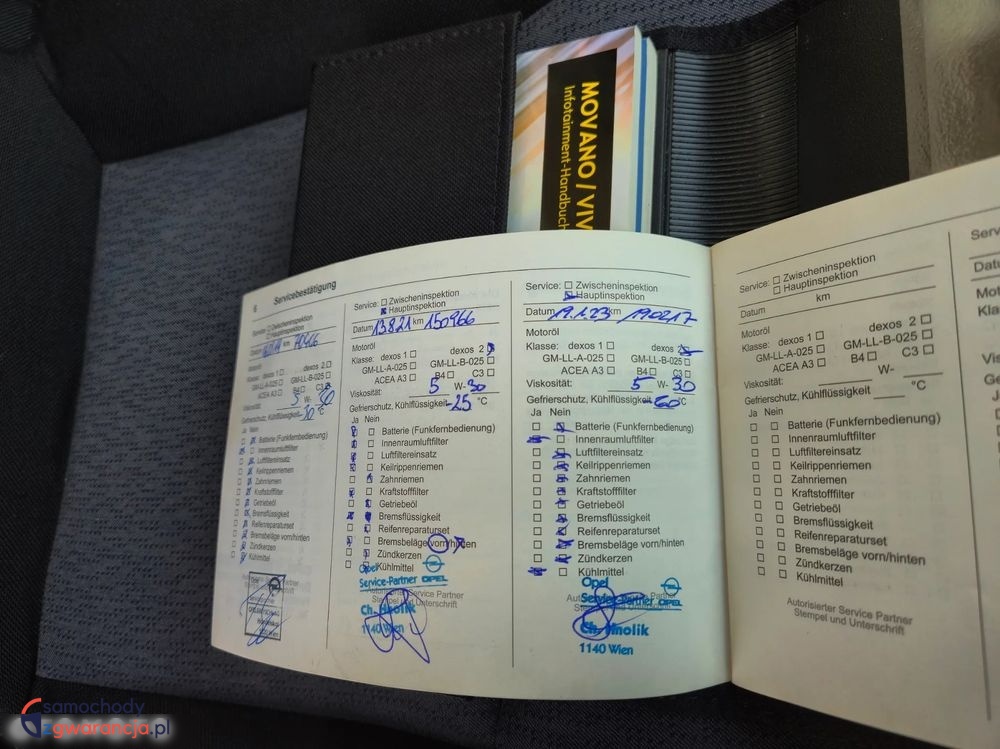 MOVANO / VIV
Infotainment-Handbuch
6 Servicebestätigung
Service: ☐ Zwischeninspektion
☐ Hauptinspektion
Datum km
Motoröl
Klasse: dexos 1 ☐ dexos 2 ☐
GM-LL-A-025 ☐ GM-LL-B-025 ☐
ACEA A3 ☐ B4 ☐ C3
Viskosität: 5 W-
Gefrierschutz, Kühlflüssigkeit °C
Ja Nein
Batterie (Funkfernbedienung)
Innenraumluftfilter
Luftfiltereinsatz
Keilrippenriemen
Zahnriemen
Kraftstofffilter
Getriebeöl
Bremsflüssigkeit
Reifenreparaturset
Bremsbeläge vorn/hinten
Zündkerzen
Kühlmittel
Service: ☐ Zwischeninspektion
☒ Hauptinspektion
Datum 13.8.21 km 150966
Motoröl
Klasse: dexos 1 ☐ dexos 2
GM-LL-A-025 ☐ GM-LL-B-025 ☐
ACEA A3 ☐ B4 ☐ C3 ☐
Viskosität: 5 W-30
Gefrierschutz, Kühlflüssigkeit -25 °C
Ja Nein
Batterie (Funkfernbedienung)
Innenraumluftfilter
Luftfiltereinsatz
Keilrippenriemen
Zahnriemen
Kraftstofffilter
Getriebeöl
Bremsflüssigkeit
Reifenreparaturset
Bremsbeläge vorn/hinten
Zündkerzen
Kühlmittel
Opel
Service-Partner OPEL
Autorisierter Service Partner
Stempel und Unterschrift
Ch. Hnolik
1140 Wien
Service: ☐ Zwischeninspektion
☒ Hauptinspektion
Datum 19.1.23 km 190217
Motoröl
Klasse: dexos 1 ☐ dexos 2
GM-LL-A-025 ☐ GM-LL-B-025 ☐
ACEA A3 ☐ B4 ☐ C3 ☐
Viskosität: 5 W-30
Gefrierschutz, Kühlflüssigkeit -60 °C
Ja Nein
Batterie (Funkfernbedienung)
Innenraumluftfilter
Luftfiltereinsatz
Keilrippenriemen
Zahnriemen
Kraftstofffilter
Getriebeöl
Bremsflüssigkeit
Reifenreparaturset
Bremsbeläge vorn/hinten
Zündkerzen
Kühlmittel
Opel
Service-Partner OPEL
Autorisierter Service Partner
Stempel und Unterschrift
Ch. Hnolik
1140 Wien
Service: ☐ Zwischeninspektion
☐ Hauptinspektion
Datum km
Motoröl
Klasse: dexos 1 ☐ dexos 2 ☐
GM-LL-A-025 ☐ GM-LL-B-025 ☐
ACEA A3 ☐ B4 ☐ C3 ☐
Viskosität: W-
Gefrierschutz, Kühlflüssigkeit °C
Ja Nein
☐ ☐ Batterie (Funkfernbedienung)
☐ ☐ Innenraumluftfilter
☐ ☐ Luftfiltereinsatz
☐ ☐ Keilrippenriemen
☐ ☐ Zahnriemen
☐ ☐ Kraftstofffilter
☐ ☐ Getriebeöl
☐ ☐ Bremsflüssigkeit
☐ ☐ Reifenreparaturset
☐ ☐ Bremsbeläge vorn/hinten
☐ ☐ Zündkerzen
☐ ☐ Kühlmittel
Autorisierter Service Partner
Stempel und Unterschrift
Serv
Datu
Mot
Kla
samochody
zgwarancja.pl